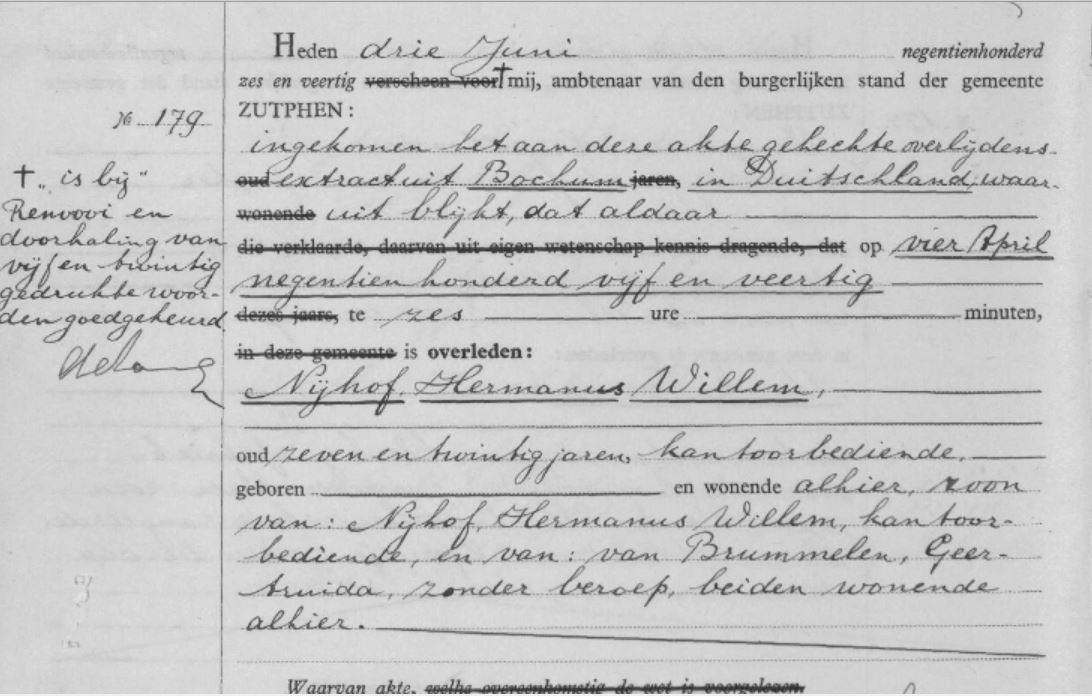 Heden drie Juni negentienhonderd
zes en veertig verscheen voor † mij, ambtenaar van den burgerlijken stand der gemeente
ZUTPHEN:
№ 179
ingekomen het aan deze akte gehechte overlijdens-
oud extract uit Bochum jaren, in Duitschland, waar-
wonende uit blijkt, dat aldaar
die verklaarde, daarvan uit eigen wetenschap kennis dragende, dat op vier April
negentienhonderd vijf en veertig
dezes jaars, te zes ure minuten,
in deze gemeente is overleden:
Nijhof, Hermanus Willem,
oud zeven en twintig jaren, kantoorbediende,
geboren en wonende alhier, zoon
van: Nijhof, Hermanus Willem, kantoor-
bediende, en van: van Brummelen, Geer-
truida, zonder beroep, beiden wonende
alhier.
Waarvan akte, welke overeenkomstig de wet is voorgelezen.
† „is bij"
Renvooi en
doorhaling van
vijf en twintig
gedrukte woor-
den goedgekeurd